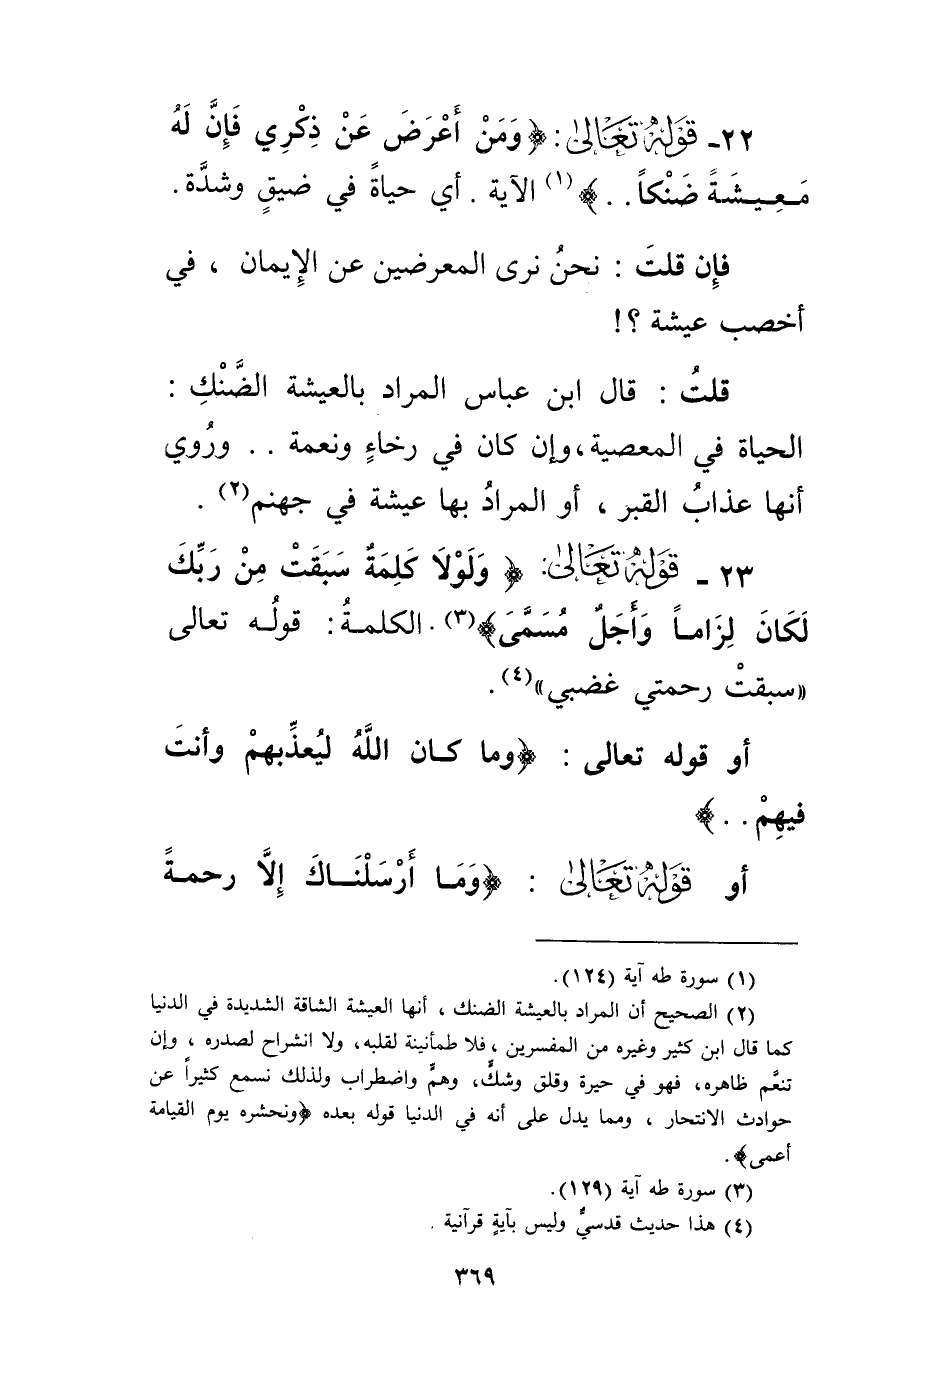 ٢٢- قَوْلُهُ تَعَالَىٰ: ﴿وَمَنْ أَعْرَضَ عَنْ ذِكْرِي فَإِنَّ لَهُ
مَعِيشَةً ضَنْكاً . . ﴾(١) الآية . أي حياةً في ضيقٍ وشدَّة .
فإن قلتَ : نحنُ نرى المعرضين عن الإِيمان ، في
أخصب عيشة ؟!
قلتُ : قال ابن عباس المراد بالعيشة الضَّنْكِ :
الحياة في المعصية،وإن كان في رخاءٍ ونعمة . . ورُوي
أنها عذابُ القبر ، أو المرادُ بها عيشة في جهنم(٢) .
٢٣ - قَوْلُهُ تَعَالَىٰ: ﴿ وَلَوْلَا كَلِمَةٌ سَبَقَتْ مِنْ رَبِّكَ
لَكَانَ لِزَاماً وَأَجَلٌ مُسَمَّىَ﴾(٣) . الكلمةُ : قولُه تعالى
«سبقتْ رحمتي غضبي»(٤) .
أو قوله تعالى : ﴿وما كان اللَّهُ ليُعذِّبهمْ وأنتَ
فيهِمْ . . ﴾
أو قَوْلُهُ تَعَالَىٰ : ﴿وَمَا أَرْسَلْنَاكَ إِلَّا رحمةً
(١) سورة طه آية (١٢٤).
(٢) الصحيح أن المراد بالعيشة الضنك ، أنها العيشة الشاقة الشديدة في الدنيا
كما قال ابن كثير وغيره من المفسرين ، فلا طمأنينة لقلبه، ولا انشراح لصدره ، وإن
تنعَّم ظاهره، فهو في حيرة وقلق وشكٍّ، وهمٍّ واضطراب ولذلك نسمع كثيراً عن
حوادث الانتحار ، ومما يدل على أنه في الدنيا قوله بعده ﴿ونحشره يوم القيامة
أعمى﴾ .
(٣) سورة طه آية (١٢٩).
(٤) هذا حديث قدسيٌّ وليس بآيةٍ قرآنية .
٣٦٩